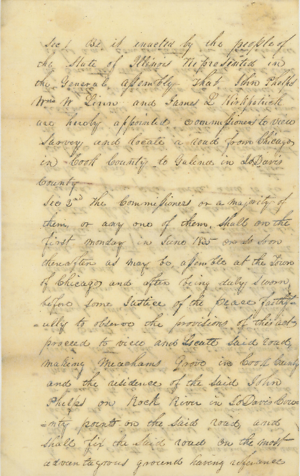 Sec 1 Be it enacted by the people of
the State of Illinois Represented in
the General assembly That John Phelps
Wm W. and James L Kirkpatrick
are hereby appointed commissioners to view
Survey and locate a Road from Chicago
in Cook County to Galena in Jo Davis
County
Sec 2nd The Commissioners or a majority of
them or any one of them, shall on the
first monday in June 1835 or as soon
thereafter as may be, assemble at the Town
of Chicago and after being duly sworn
before some Justice of the peace faithf-
ully to observe the provisions of this act
proceed to view and Locate Said road
making Meachams Grove in Cook County
and the residence of the said John
Phelps on Rock River in Jo Davis Coun-
ty points on the Said road, and
shall fix the Said road on the most
advantageous ground having reference